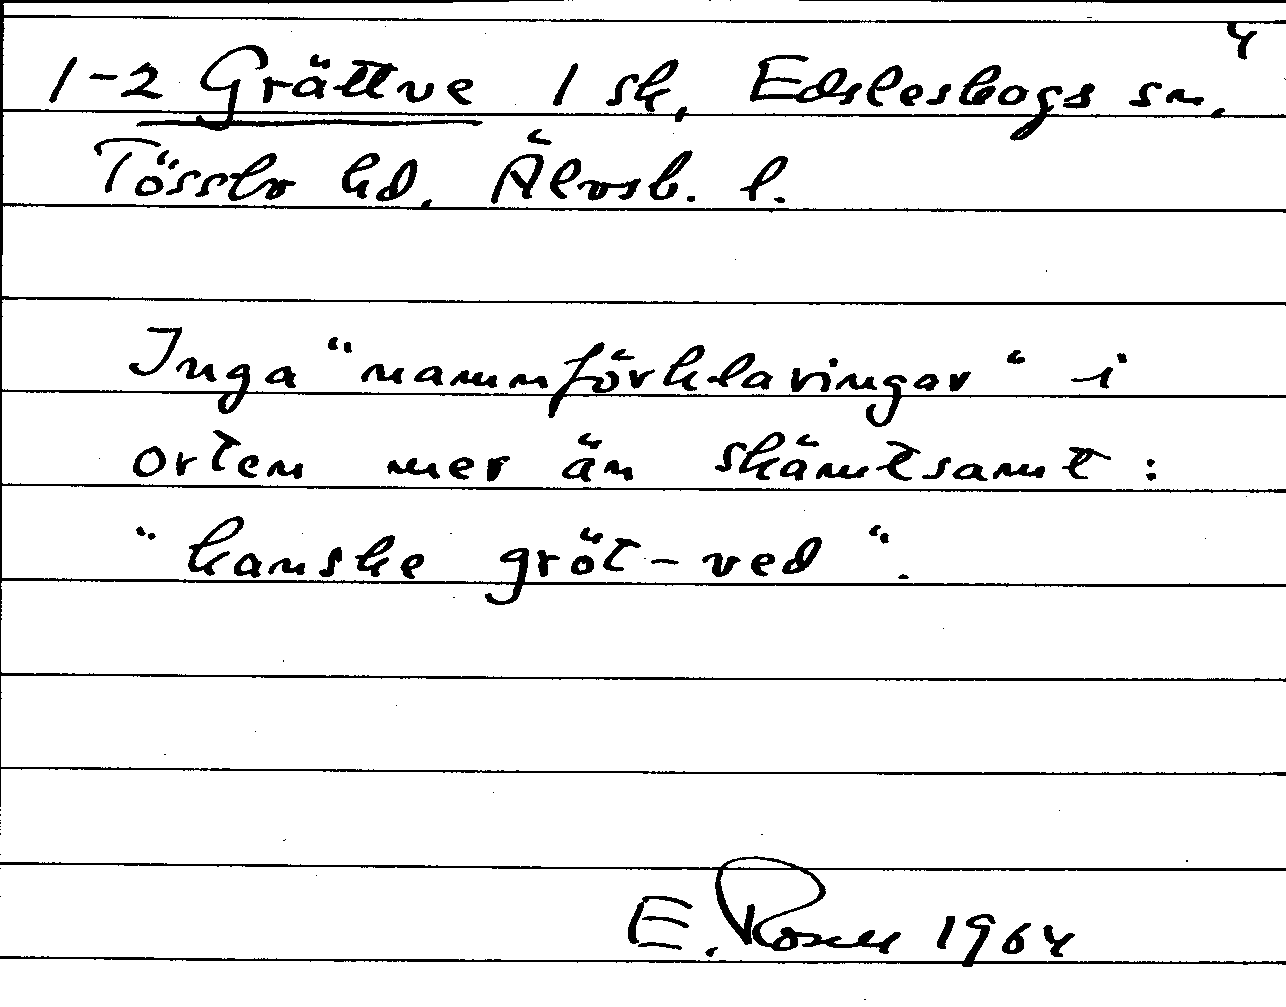 4
1-2 Grättve 1 sk, Edsleskogs sn.
Tössbo hd. Älvsb. l.
Inga "namnförklaringar" i
orten mer än skämtsamt:
"kanske gröt-ved".
E. Rosell 1964